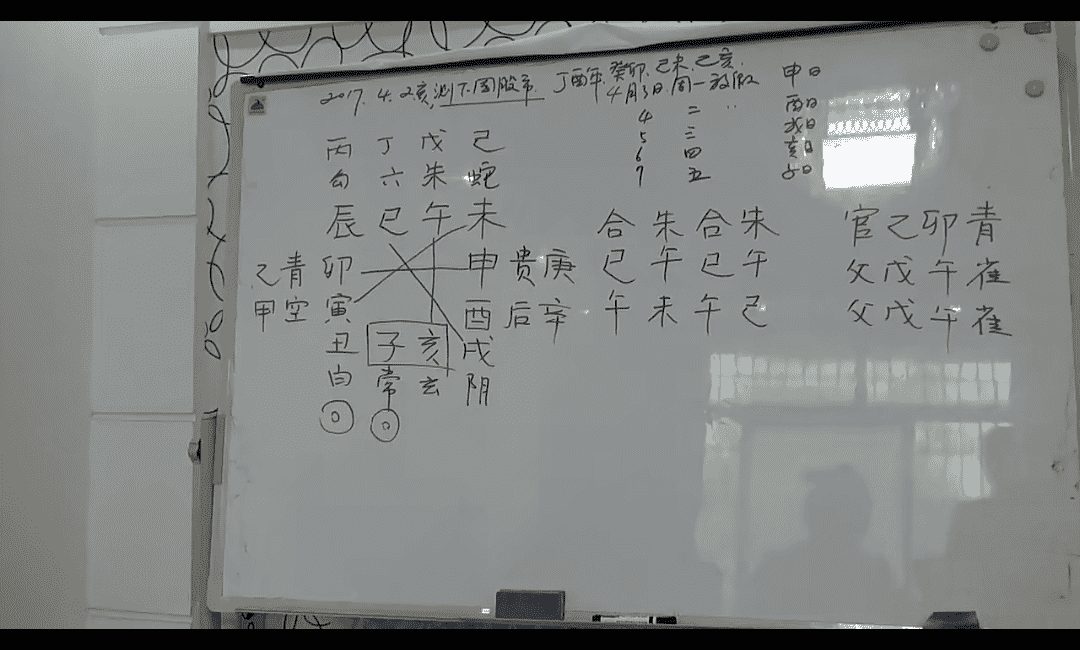 2017.4.2亥测下周股市 丁酉年.癸卯.己未.己亥.
4月3日周一放假 申日
4 二 〃 酉日
5 三 戌日
6 四 亥日
7 五 子日
丙 丁 戊 己
勾 六 朱 蛇
辰 巳 午 未
乙青 卯 申 贵庚
甲空 寅 酉 后辛
丑 子 亥 戌
白 常 玄 阴
合 朱 合 朱
巳 午 巳 午
午 未 午 己
官己卯青
父戊午雀
父戊午雀